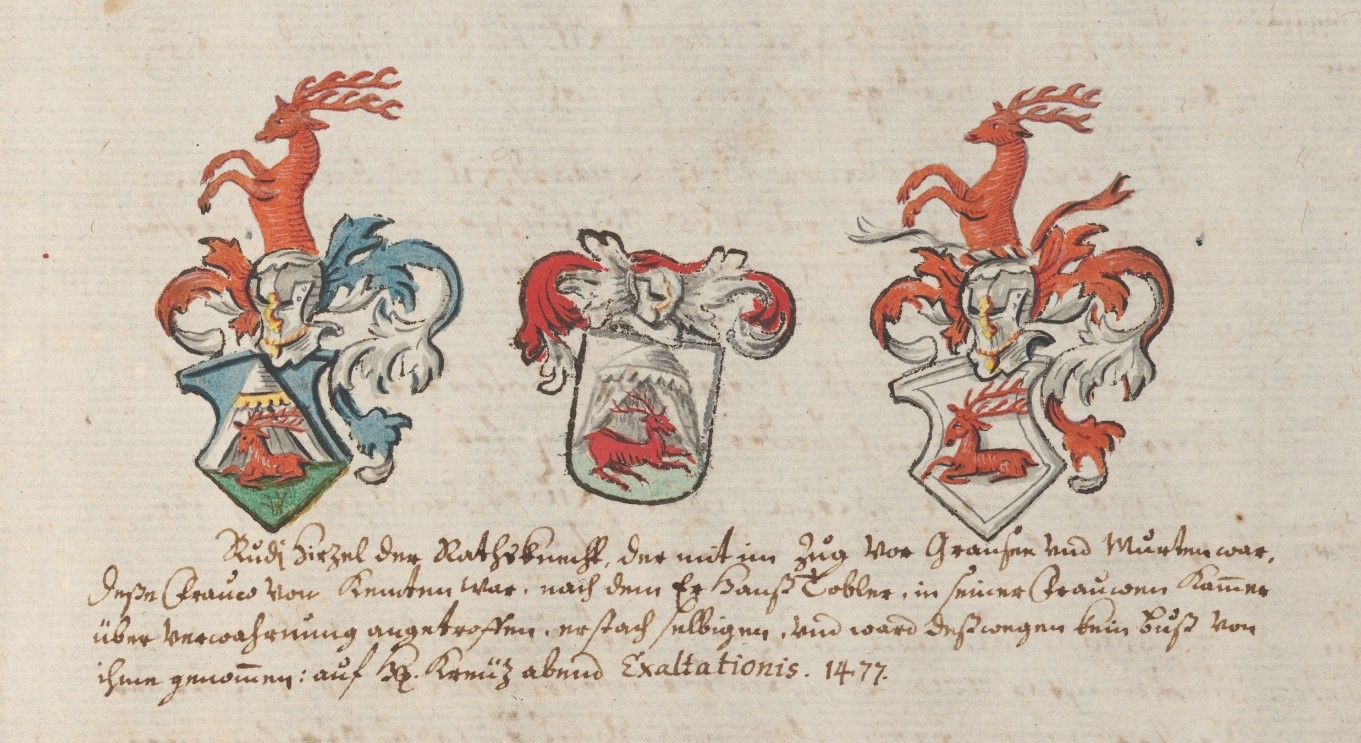 Rudj Hirzel der Rathsknecht, der mit im Zug vor Gransee vnd Murten war,
deße Frauw von Kemten war, nach dem Er Hanß Tobler, in seiner Frauwen Kam̄er
über verwahrnung angetroffen, erstach selbigen, vnd ward deßwegen kein Buß von
ihme genom̄en: auf H. Kreüz abend Exaltationis. 1477.